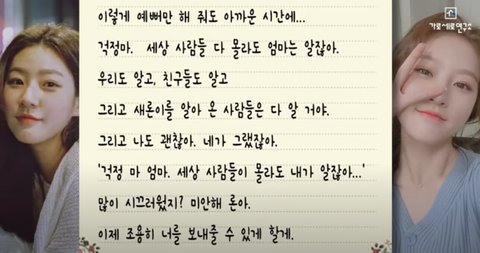 가로세로연구소
이렇게 예뻐만 해 줘도 아까운 시간에...
걱정마. 세상 사람들 다 몰라도 엄마는 알잖아.
우리도 알고, 친구들도 알고
그리고 새론이를 알아 온 사람들은 다 알 거야.
그리고 나도 괜찮아. 네가 그랬잖아.
'걱정 마 엄마. 세상 사람들이 몰라도 내가 알잖아...'
많이 시끄러웠지? 미안해 론아.
이제 조용히 너를 보내줄 수 있게 할게.